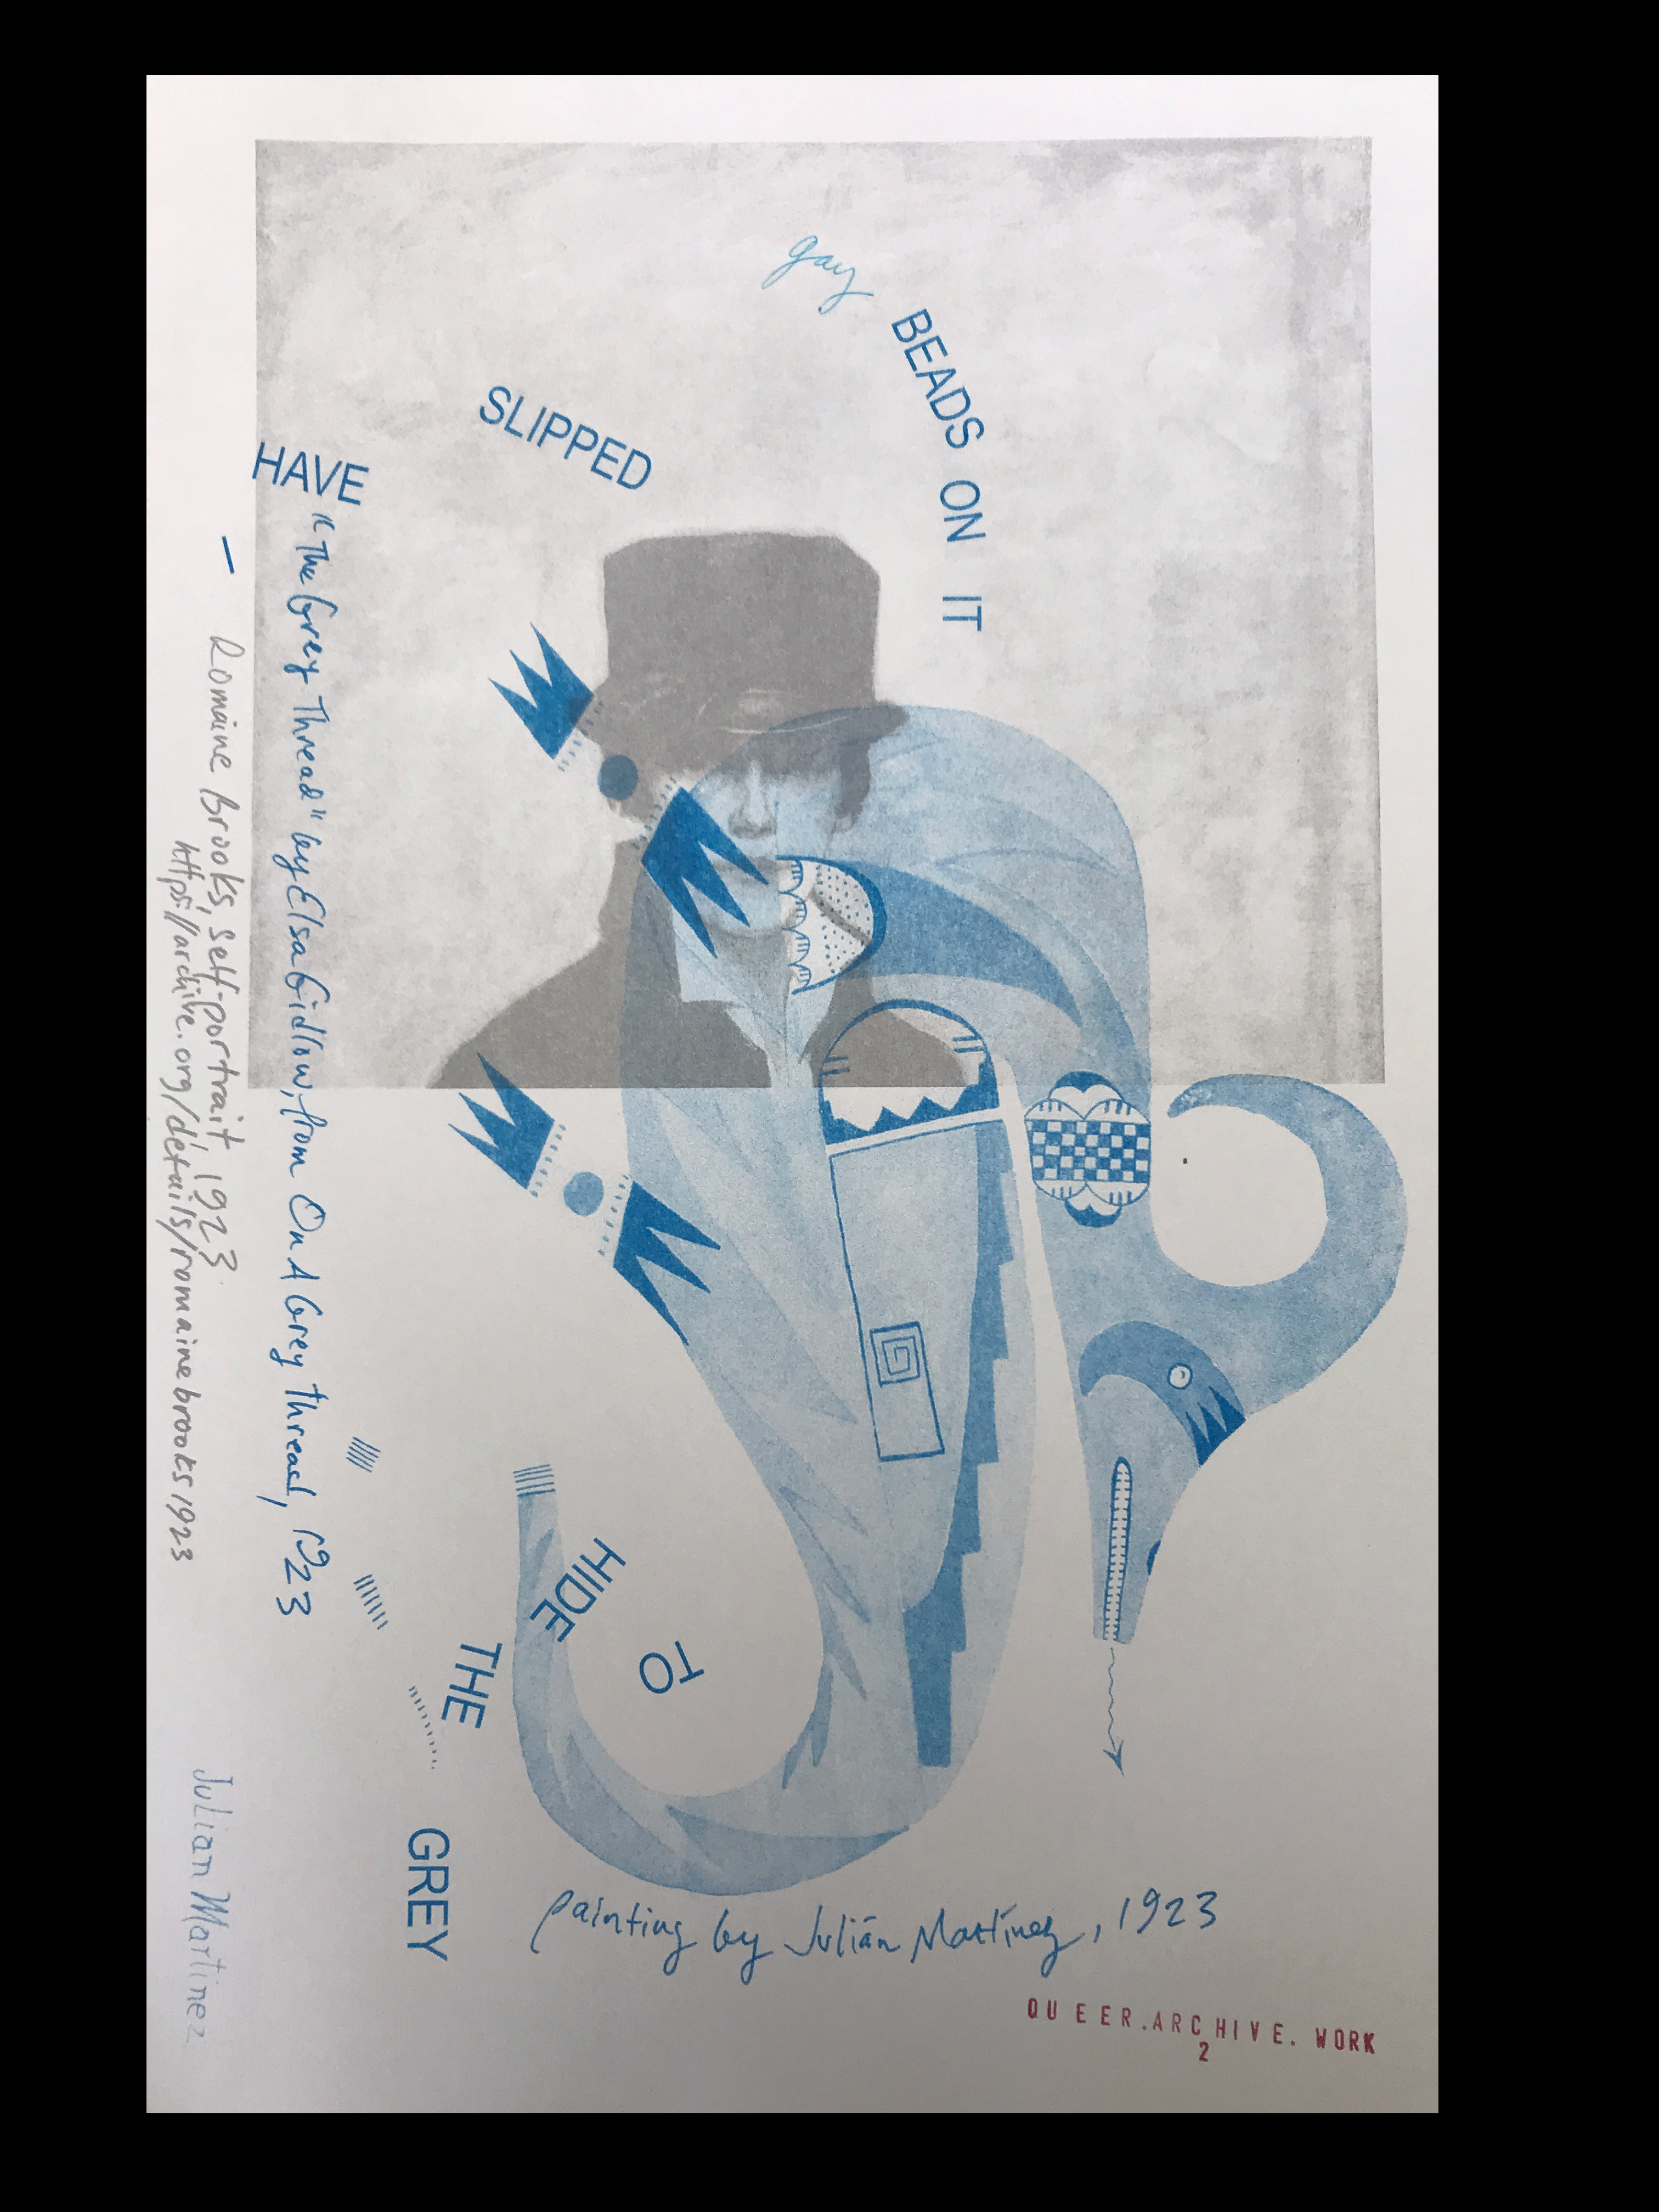 gay
BEADS ON IT
SLIPPED
HAVE
—
"The Grey Thread" by Elsa Gidlow, from On A Grey Thread, 1923
Romaine Brooks, self-portrait, 1923.
https://archive.org/details/romainebrooks1923
HIDE
TO
THE
GREY
painting by Julián Martínez, 1923
Julian Martinez
QUEER.ARCHIVE.WORK
2